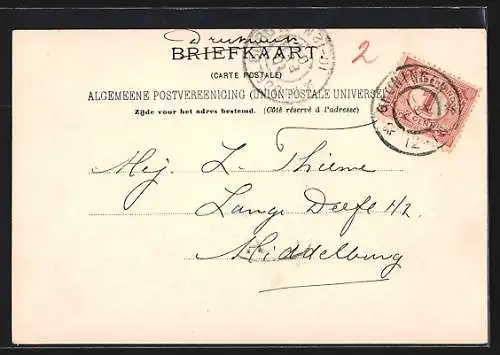 Drukwerk
BRIEFKAART
(CARTE POSTALE)
ALGEMEENE POSTVEREENIGING (UNION POSTALE UNIVERSELLE)
Zijde voor het adres bestemd. (Côté réservé à l'adresse)
2
1
CENT
12
Mej. L. Thieme
Lange Delft H/2
Middelburg